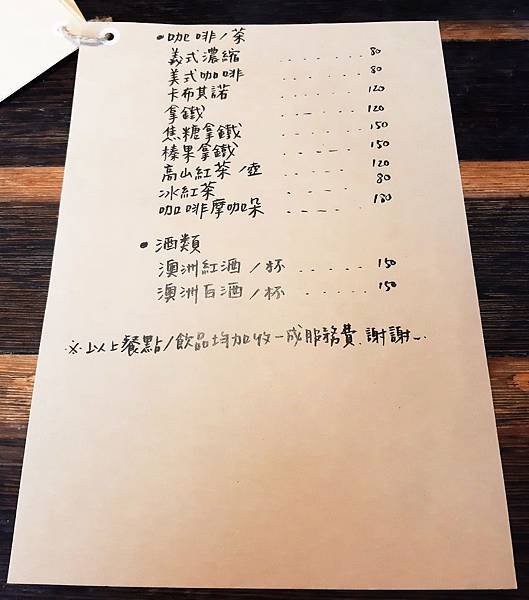 •咖啡/茶
義式濃縮 ....... 80
美式咖啡 ....... 80
卡布其諾 ...... 120
拿鐵 ...... 120
焦糖拿鐵 ..... 150
榛果拿鐵 ..... 150
高山紅茶/壺 ..... 120
冰紅茶 ..... 80
咖啡摩咖朵 ..... 180
•酒類
澳洲紅酒/杯 ..... 150
澳洲白酒/杯 ..... 150
※以上餐點/飲品均加收一成服務費.謝謝~.